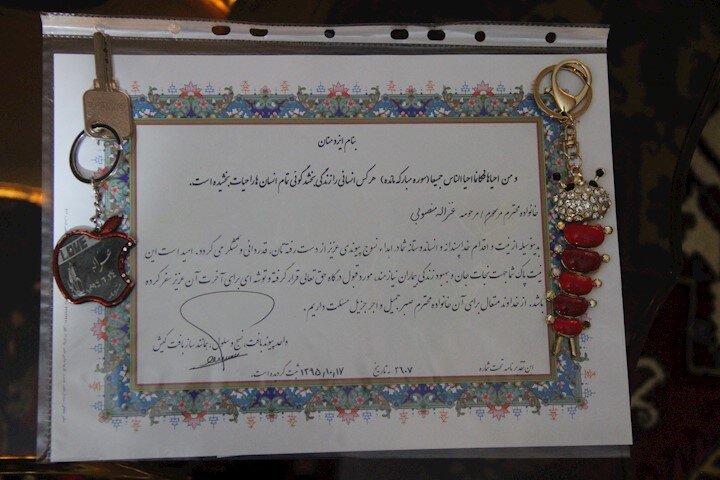 بنام ایزد منان
و من احیاها فکانما احیا الناس جمیعا (سوره مبارکه مائده) هر کس انسانی را زندگی بخشد گوئی تمام انسان ها را حیات بخشیده است.
خانواده محترم مرحوم / مرحومه غزاله منصوبی
بدینوسیله از نیت و اقدام خداپسندانه و انساندوستانه شما در اهداء نسوج پیوندی عزیز از دست رفته تان، قدردانی و تشکر می گردد. امید است این
نیت پاک شما جهت نجات جان و بهبود زندگی بیماران نیازمند، مورد قبول درگاه حق تعالی قرار گرفته و توشه ای برای آخرت آن عزیز سفر کرده
باشد. از خداوند متعال برای آن خانواده محترم صبر جمیل و اجر جزیل مسئلت داریم.
واحد پیوند بافت، نسج و سلول، همانند ساز بافت کیش
این تقدیر نامه تحت شماره ۲۶۰۷ به تاریخ ۱۳۹۵/۱۰/۱۷ ثبت گردیده است.
LOVE